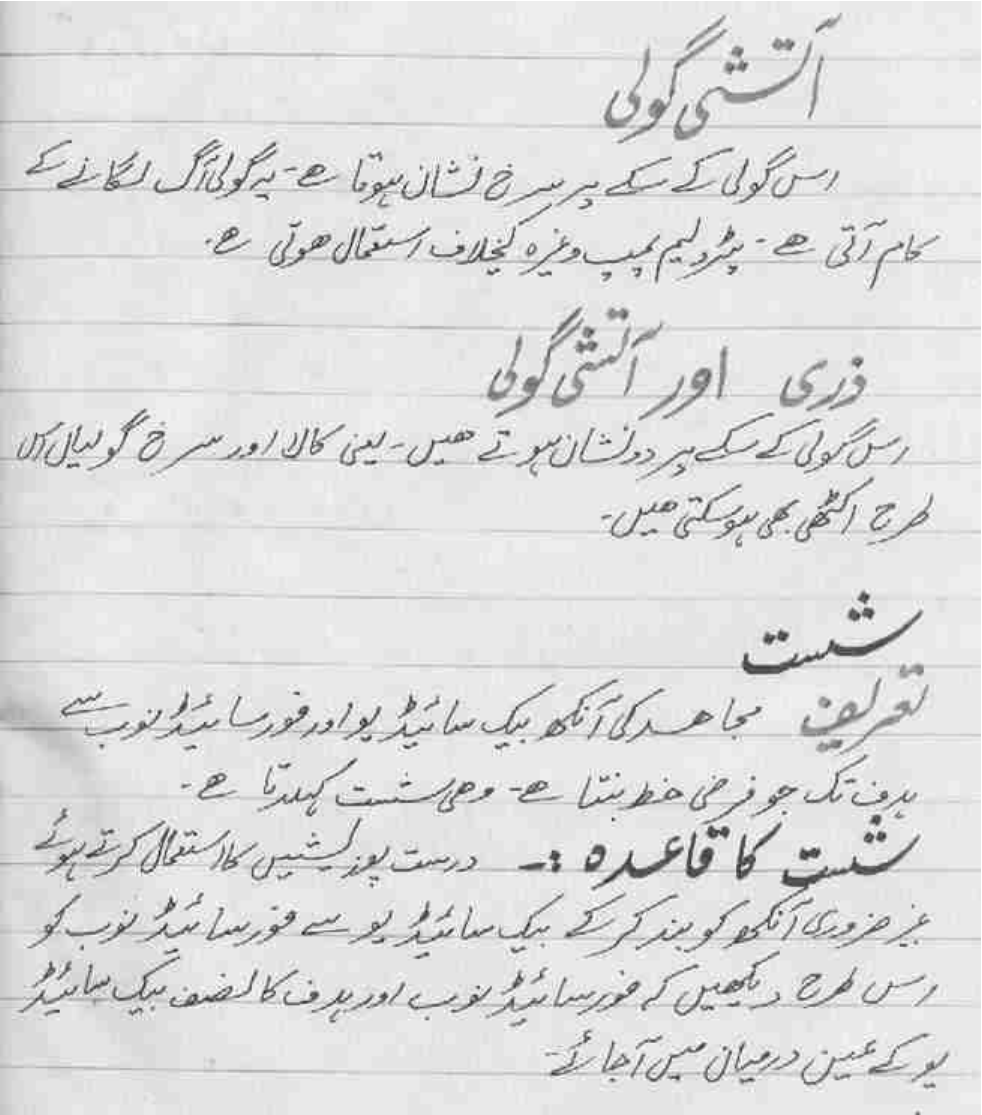 آتشی گولی
اس گولی کے سکے پر سرخ نشان ہوتا ھے۔ یہ گولی آگ لگانے کے
کام آتی ھے۔ پٹرولیم پمپ وغیرہ کیخلاف استعمال ھوتی ھے۔
ذری اور آتشی گولی
اس گولی کے سکے پر دو نشان ہوتے ھیں۔ یعنی کالا اور سرخ گولیاں اس
طرح اکٹھی بھی ہوسکتی ھیں۔
شست
تعریف مجاھد کی آنکھ بیک سائیڈ یو اور فورسائیڈ نوب سے
ہدف تک جو فرضی خط بنتا ھے۔ وھی شست کہلاتا ھے۔
شست کا قاعدہ :۔ درست پوزیشین کا استعمال کرتے ہوئے
غیر ضروری آنکھ کو بند کر کے بیک سائیڈ یو سے فورسائیڈ نوب کو
اس طرح دیکھیں کہ فورسائیڈ نوب اور ہدف کا نصف بیک سائیڈ
یو کے عین درمیان میں آجائے۔